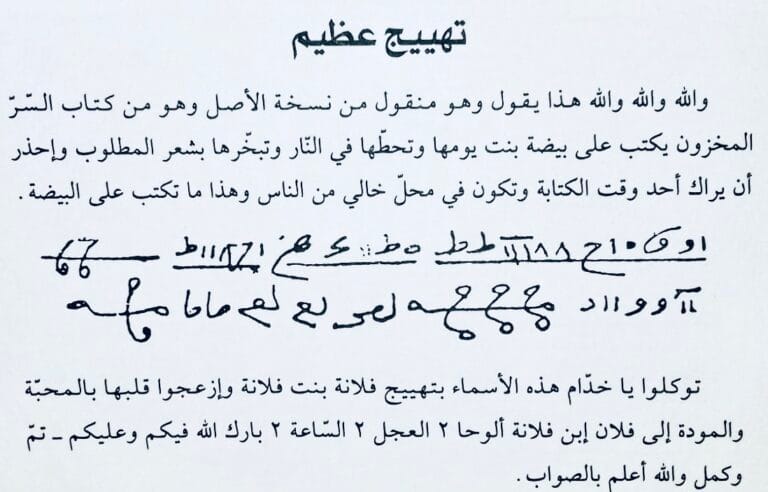 تهييج عظيم
والله والله والله هذا يقول وهو منقول من نسخة الأصل وهو من كتاب السّرّ
المخزون يكتب على بيضة بنت يومها وتحطّها في النّار وتبخّرها بشعر المطلوب وإحذر
أن يراك أحد وقت الكتابة وتكون في محلّ خالي من الناس وهذا ما تكتب على البيضة .
توكلوا يا خدّام هذه الأسماء بتهييج فلانة بنت فلانة وإزعجوا قلبها بالمحبّة
والمودة إلى فلان إبن فلانة ألوحا ٢ العجل ٢ السّاعة ٢ بارك الله فيكم وعليكم ـ تمّ
وكمل والله أعلم بالصواب .